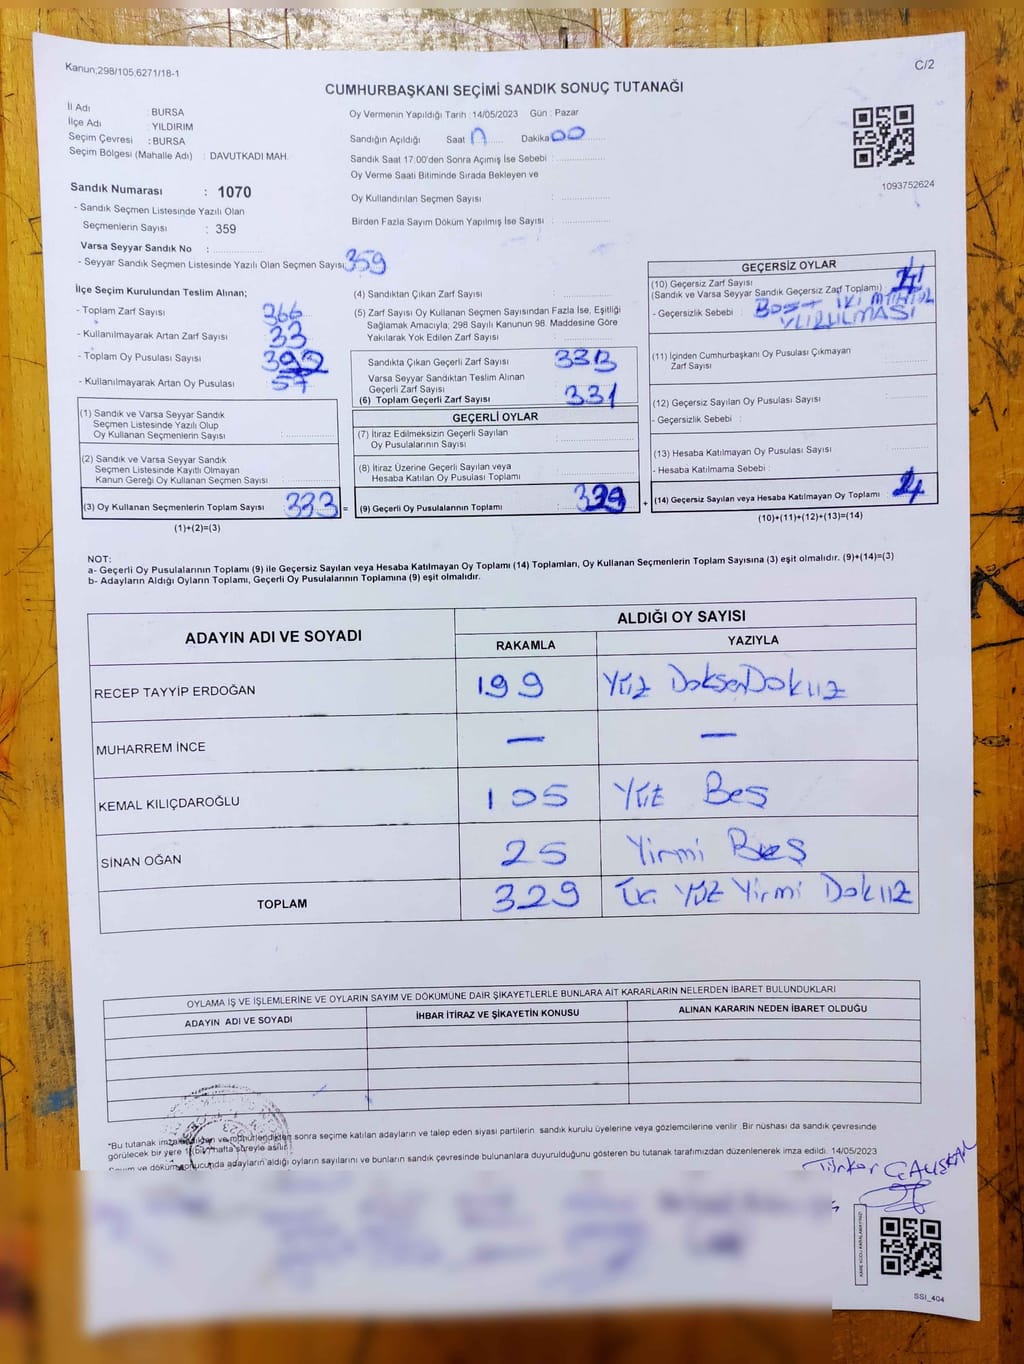 Kanun;298/105,6271/18-1
C/2
CUMHURBAŞKANI SEÇİMİ SANDIK SONUÇ TUTANAĞI
İl Adı : BURSA
İlçe Adı : YILDIRIM
Seçim Çevresi : BURSA
Seçim Bölgesi (Mahalle Adı) : DAVUTKADI MAH.
Oy Vermenin Yapıldığı Tarih : 14/05/2023 Gün : Pazar
Sandığın Açıldığı Saat Dakika 00
Sandık Saat 17:00'den Sonra Açılmış İse Sebebi :
Oy Verme Saati Bitiminde Sırada Bekleyen ve
Oy Kullandırılan Seçmen Sayısı :
Birden Fazla Sayım Döküm Yapılmış İse Sayısı :
1093752624
Sandık Numarası : 1070
- Sandık Seçmen Listesinde Yazılı Olan
Seçmenlerin Sayısı : 359
Varsa Seyyar Sandık No :
- Seyyar Sandık Seçmen Listesinde Yazılı Olan Seçmen Sayısı: 359
İlçe Seçim Kurulundan Teslim Alınan;
- Toplam Zarf Sayısı : 366
- Kullanılmayarak Artan Zarf Sayısı : 33
- Toplam Oy Pusulası Sayısı : 392
- Kullanılmayarak Artan Oy Pusulası : 57
(1) Sandık ve Varsa Seyyar Sandık
Seçmen Listesinde Yazılı Olup
Oy Kullanan Seçmenlerin Sayısı :
(2) Sandık ve Varsa Seyyar Sandık
Seçmen Listesinde Kayıtlı Olmayan
Kanun Gereği Oy Kullanan Seçmen Sayısı :
(3) Oy Kullanan Seçmenlerin Toplam Sayısı : 333 =
(1)+(2)=(3)
(4) Sandıktan Çıkan Zarf Sayısı :
(5) Zarf Sayısı Oy Kullanan Seçmen Sayısından Fazla İse, Eşitliği
Sağlamak Amacıyla; 298 Sayılı Kanunun 98. Maddesine Göre
Yakılarak Yok Edilen Zarf Sayısı :
Sandıkta Çıkan Geçerli Zarf Sayısı : 333
Varsa Seyyar Sandıktan Teslim Alınan
Geçerli Zarf Sayısı :
(6) Toplam Geçerli Zarf Sayısı : 331
GEÇERLİ OYLAR
(7) İtiraz Edilmeksizin Geçerli Sayılan
Oy Pusulalarının Sayısı :
(8) İtiraz Üzerine Geçerli Sayılan veya
Hesaba Katılan Oy Pusulası Toplamı :
(9) Geçerli Oy Pusulalarının Toplamı : 329 +
GEÇERSİZ OYLAR
(10) Geçersiz Zarf Sayısı
(Sandık ve Varsa Seyyar Sandık Geçersiz Zarf Toplamı) :
- Geçersizlik Sebebi : BOŞ + İKİ MÜHÜR
VURULMASI
(11) İçinden Cumhurbaşkanı Oy Pusulası Çıkmayan
Zarf Sayısı :
(12) Geçersiz Sayılan Oy Pusulası Sayısı :
- Geçersizlik Sebebi :
(13) Hesaba Katılmayan Oy Pusulası Sayısı :
- Hesaba Katılmama Sebebi :
(14) Geçersiz Sayılan veya Hesaba Katılmayan Oy Toplamı : 4
(10)+(11)+(12)+(13)=(14)
NOT:
a- Geçerli Oy Pusulalarının Toplamı (9) ile Geçersiz Sayılan veya Hesaba Katılmayan Oy Toplamı (14) Toplamları, Oy Kullanan Seçmenlerin Toplam Sayısına (3) eşit olmalıdır. (9)+(14)=(3)
b- Adayların Aldığı Oyların Toplamı, Geçerli Oy Pusulalarının Toplamına (9) eşit olmalıdır.
ADAYIN ADI VE SOYADI
ALDIĞI OY SAYISI
RAKAMLA YAZIYLA
RECEP TAYYİP ERDOĞAN 199 Yüz DoksanDokuz
MUHARREM İNCE — —
KEMAL KILIÇDAROĞLU 105 Yüz Beş
SİNAN OĞAN 25 Yirmi Beş
TOPLAM 329 Üç Yüz Yirmi Dokuz
OYLAMA İŞ VE İŞLEMLERİNE VE OYLARIN SAYIM VE DÖKÜMÜNE DAİR ŞİKAYETLERLE BUNLARA AİT KARARLARIN NELERDEN İBARET BULUNDUKLARI
ADAYIN ADI VE SOYADI İHBAR İTİRAZ VE ŞİKAYETİN KONUSU ALINAN KARARIN NEDEN İBARET OLDUĞU
*Bu tutanak imzalandıktan ve mühürlendikten sonra seçime katılan adayların ve talep eden siyasi partilerin sandık kurulu üyelerine veya gözlemcilerine verilir. Bir nüshası da sandık çevresinde
görülecek bir yere 1(bir) hafta süreyle asılır.
Sayım ve döküm sonucunda adayların aldığı oyların sayılarını ve bunların sandık çevresinde bulunanlara duyurulduğunu gösteren bu tutanak tarafımızdan düzenlenerek imza edildi. 14/05/2023
Türker ÇALIŞKAN
KARE KODU KARALAMAYINIZ!
SSI_404